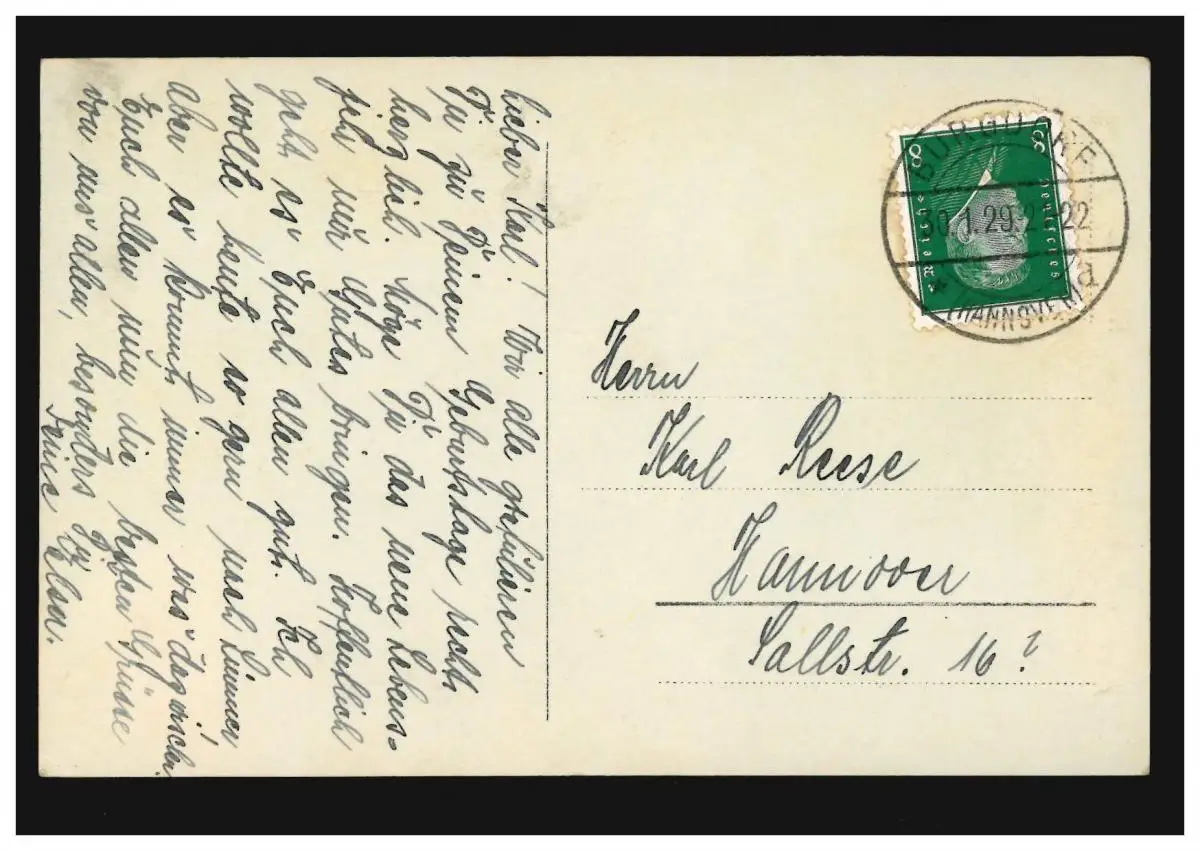 Lieber Karl! Wir alle gratulieren
Dir zu Deinem Geburtstage recht
herzlich. Möge Dir das neue Lebens-
jahr nur Gutes bringen. Hoffentlich
geht es Euch allen gut. Ich
wollte heute so gern nach Limmer,
aber es kommt immer was dazwischen.
Euch allen nun die besten Grüsse
von uns allen, besonders
Deine Elsen.
8 8
Deutsches Reich
BURGDORF
30.1.29.21-22
* (HANNOVER) d
Herrn
Karl Reese
Hannover
Sallstr. 16?